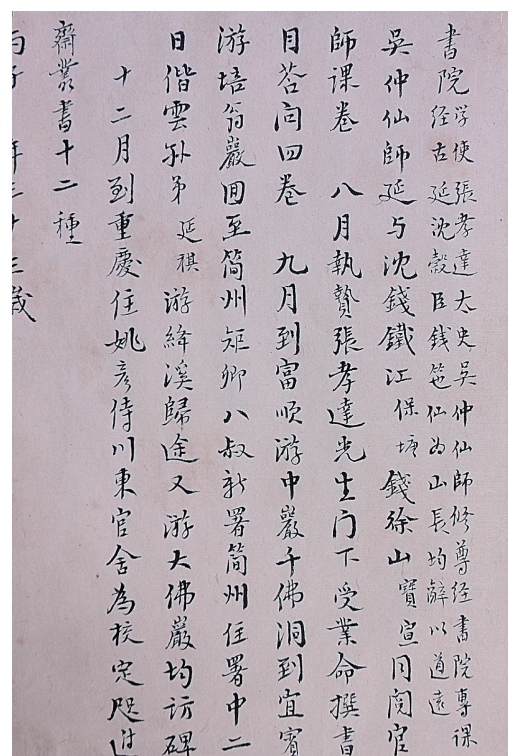 書院学使張孝達太史吳仲仙師修尊经書院專课
经古延沈縠臣钱笆仙为山長均辭以道遠
吳仲仙師延与沈錢鐵江保塘錢徐山寶宣同閱官
師课卷 八月執贄張孝達先生门下受業命撰書
目荅问四卷 九月到富顺游中巖千佛洞到宜賓
游培翁巖回至简州矩卿八叔新署简州住署中二
日偕雲孙弟延祺游絳溪歸途又游大佛巖均访碑
十二月到重慶住姚彦侍川東官舍為校定咫进
齋叢書十二種
丙子 年三十三歲